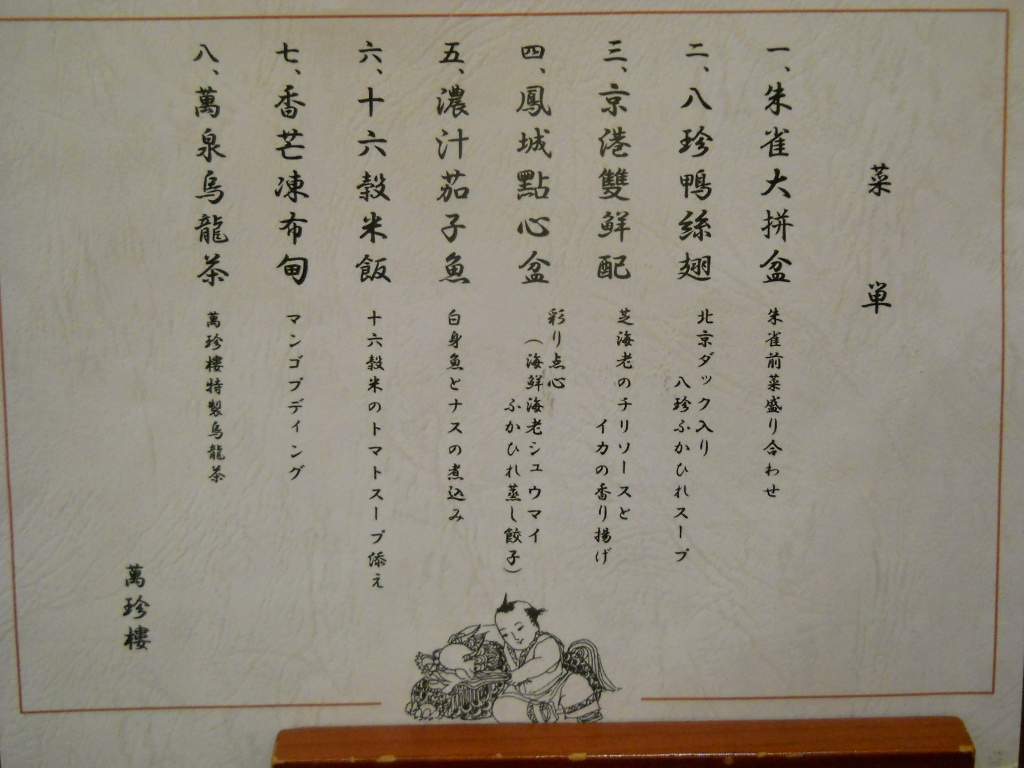 菜単
一、朱雀大拼盆
朱雀前菜盛り合わせ
二、八珍鴨絲翅
北京ダック入り
八珍ふかひれスープ
三、京港雙鮮配
芝海老のチリソースと
イカの香り揚げ
四、鳳城點心盆
彩り点心
（海鮮海老シュウマイ
ふかひれ蒸し餃子）
五、濃汁茄子魚
白身魚とナスの煮込み
六、十六穀米飯
十六穀米のトマトスープ添え
七、香芒凍布甸
マンゴプディング
八、萬泉烏龍茶
萬珍樓特製烏龍茶
萬珍樓